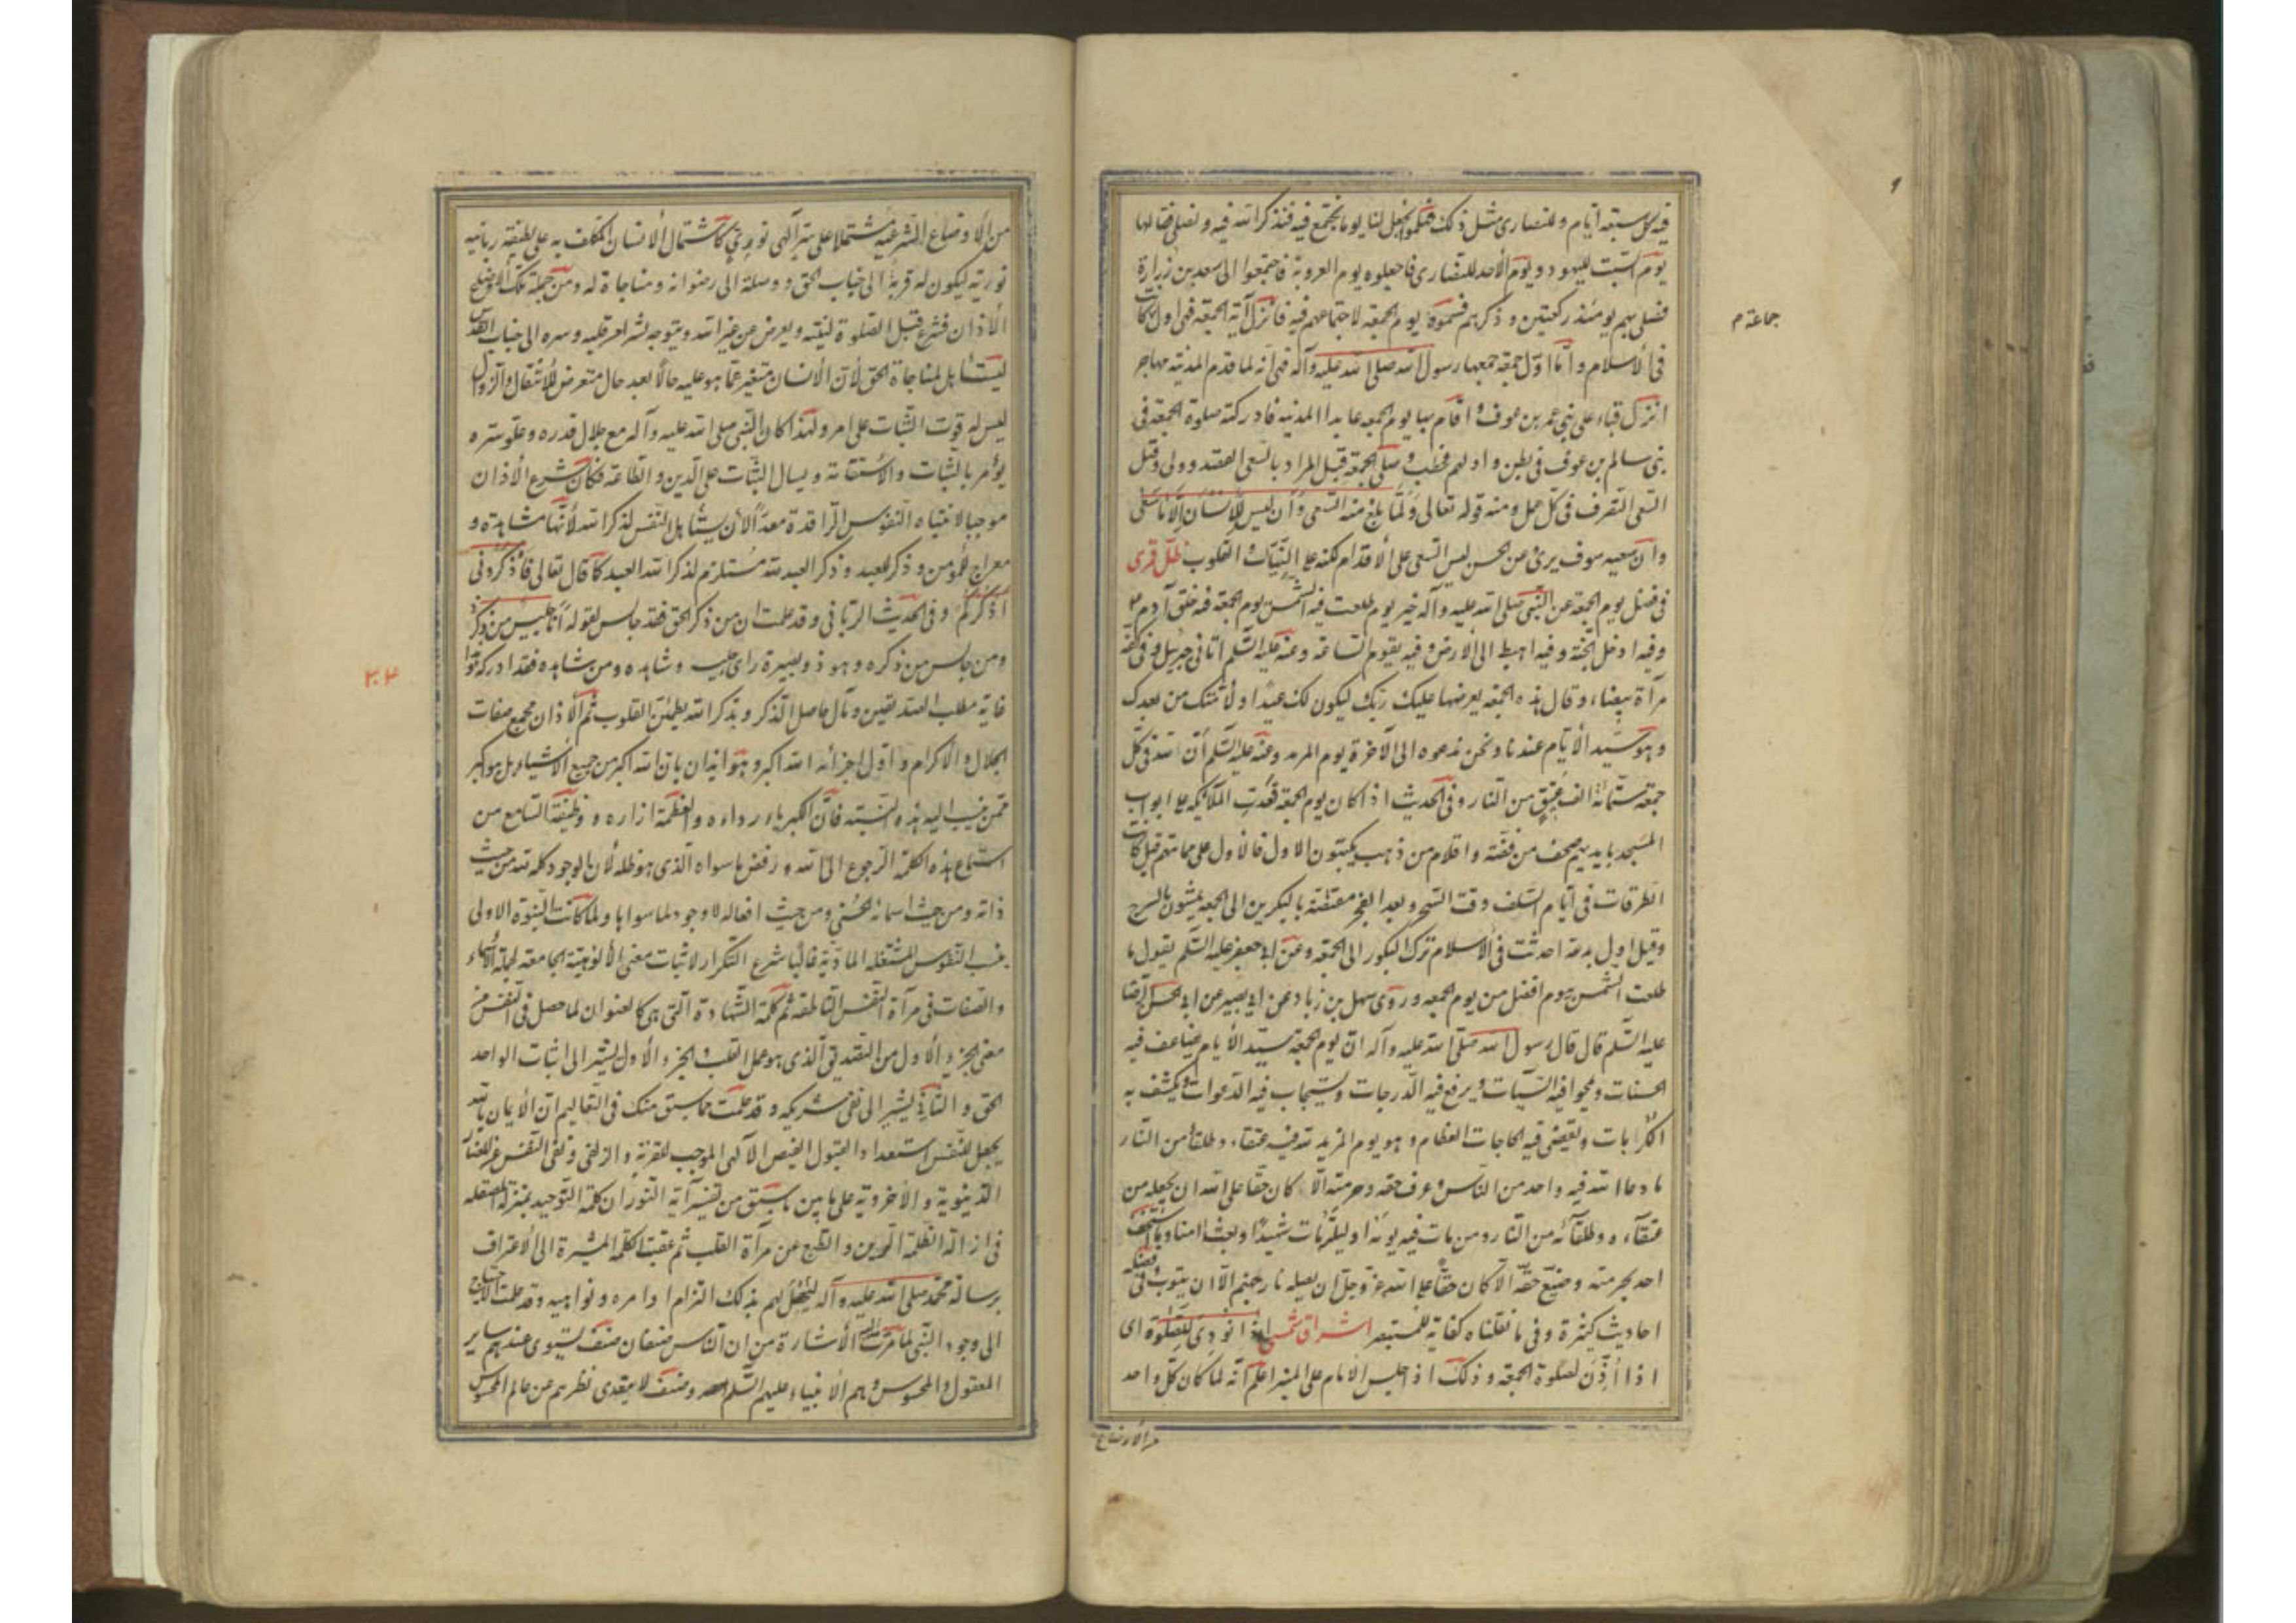 فيه كل سبعة أيام وللنصارى مثل ذلك فهلموا نجعل لنا يوما نجتمع فيه فنذكر الله فيه ونصلى فقالوا
يوم السبت لليهود ويوم الأحد للنصارى فاجعلوه يوم العروبة فاجتمعوا الى سعد بن زرارة
فصلى بهم يومئذ ركعتين وذكرهم فسموه يوم الجمعة لاجتماعهم فيه فانزل آية الجمعة فهى اول جمعة كانت
جماعة م
فى الاسلام واما اول جمعة جمعها رسول الله صلى الله عليه وآله فهى انه لما قدم المدينة مهاجر
انزل قباء على بنى عمر بن عوف واقام بها يوم الجمعة عابدا المدينة فادركته صلوة الجمعة فى
بنى سالم بن عوف فى بطن واد لهم فخطب وصلى الجمعة قبل المراد بالسعى القصد دون العدو وقيل
السعى التصرف فى كل عمل ومنه قوله تعالى ولما بلغ معه السعى وأن ليس للانسان الا ما سعى
وان سعيه سوف يرى عن الحسن ليس السعى على الاقدام لكنه على النيات والقلوب ظل فرى
فى فضل يوم الجمعة عن النبى صلى الله عليه وآله خير يوم طلعت فيه الشمس يوم الجمعة فيه خلق آدم ع
وفيه ادخل الجنة وفيه اهبط الى الارض وفيه يقوم الساعة وعنه عليه السلم اتانى جبرئيل وفى كفه
مرآة بيضاء وقال هذه الجمعة يعرضها عليك ربك ليكون لك عيدا ولأمتك من بعدك
وهو سيد الأيام عندنا ونحن ندعوه الى الآخرة يوم المزيد وعنه عليه السلم ان لله فى كل
جمعة ستمائة الف عتيق من النار وفى الحديث اذا كان يوم الجمعة قعدت الملائكة على ابواب
المسجد بايديهم صحف من فضة واقلام من ذهب يكتبون الاول فالاول على مراتبهم قيل كانت
الطرقات فى ايام السلف وقت السحر وبعد الفجر مغتصة بالبكرين الى الجمعة يمشون بالسرج
وقيل اول بدعة احدثت فى الاسلام ترك البكور الى الجمعة وعن ابى جعفر عليه السلم يقول ما
طلعت الشمس بيوم افضل من يوم الجمعة وروى سهل بن زياد عن ابى بصير عن ابى الحسن الرضا
عليه السلم قال قال رسول الله صلى الله عليه وآله ان يوم الجمعة سيد الأيام يضاعف فيه
الحسنات ويمحوا فيه السيآت ويرفع فيه الدرجات ويستجاب فيه الدعوات ويكشف به
الكرابات ويقضى فيه الحاجات العظام وهو يوم المزيد لله فيه عتقاء وطلقاء من النار
ما دعا الله فيه واحد من الناس وعرف حقه وحرمته الا كان حقا على الله ان يجعله من
عتقآءه وطلقآئه من النار ومن مات فيه يومه او ليلته مات شهيدا وبعث امنا وما استخف
احد بحرمته وضيع حقه الا كان حقا على الله عز وجل ان يصليه نار جهنم الا ان يتوب وفى فضله
احاديث كثيرة وفى ما نقلناه كفاية للمستبصر اشراق شمسى اذا نودى للصلوة اى
اذا أذن لصلوة الجمعة وذلك اذا جلس الامام على المنبر اعلم انه لما كان كل واحد
من الاوضاع
من الأوضاع الشرعية مشتملا على سر آلهى نورى كاشتمال الانسان المكلف به على لطيفة ربانية
نورية ليكون له قربة الى جناب الحق ووصلة الى رضوانه ومناجاة له ومن جملة تلك الاوضاع
الأذان فشرع قبل الصلوة لينتبه ويعرض عن غير الله ويتوجه بشراشر قلبه وسره الى جناب القدس
ليستأهل لمناجاة الحق لأن الانسان متغير عما هو عليه حالا بعد حال متعرض للانتقال والزوال
ليس له قوت الثبات على امر ولهذا كان النبى صلى الله عليه وآله مع جلال قدره وعلو سره
يؤمر بالثبات والاستقامة ويسال الثبات على الدين والطاعة فكان شرع الأذان
موجبا لانتباه النفوس الراقدة معدا لأن يستأهل النفس لذكر الله لأنها مشاهدة و
معراج للمؤمن وذكر للعبد وذكر العبد لله مستلزم لذكر الله العبد كما قال تعالى فاذكرونى
أذكركم وفى الحديث الربانى وقد علمت ان من ذكر الحق فقد جالس لقوله انا جليس من ذكرنى
ومن جالس من ذكره وهو ذو بصيرة راى جليسه وشاهده ومن شاهده فقد ادركه توا
٣٠٤
غاية مطلب الصديقين ومآل حاصل الذكر وبذكر الله يطمئن القلوب ثم الأذان مجمع صفات
الجلال والاكرام واول اجزائه الله اكبر وهو ايذان بان الله اكبر من جميع الاشياء بل هو اكبر
ممن ينسب اليه هذه النسبة فان الكبرياء رداءه والعظمة ازاره ووظيفة السامع من
استماع هذه الكلمة الرجوع الى الله ورفض ما سواه الذى هو ظله لأن الوجود كله لله من حيث
ذاته ومن حيث اسمائه الحسنى ومن حيث افعاله لا وجود لما سواها ولما كانت النبوة الاولى
والصفات فى مرآة النفس الناطقة ثم كلمة الشهادة التى هى كالعنوان لما حصل فى النفس من
معنى الجزء الاول من التصديق الذى هو عمل القلب والجزء الأول يشير الى اثبات الواحد
الحق والثانى يشير الى نفى شريكه وقد علمت مما سبق منك فى التعاليم ان الأيمان بالله
يجعل للنفس استعدادا لقبول الفيض الآلهى الموجب للقربة والزلفى
الدنيوية والأخروية على ما بين ما سبق من تفسير آية النور ان كلمة التوحيد بمنزلة المصقلة
فى ازالة الظلمة الرين والطبع عن مرآة القلب ثم عقبت الكلمة المشيرة الى الاعتراف
برسالة محمد صلى الله عليه وآله ليحصل لهم بذلك التزام اوامره ونواهيه وقد علمت الاحتياج
الى وجود النبى لما مرت اليه الأشارة من ان الناس صنفان صنف يستوى عندهم ساير
المعقول والمحسوس وهم الأنبياء عليهم السلم وصنف لا يتعدى نظرهم عن عالم المحسوس